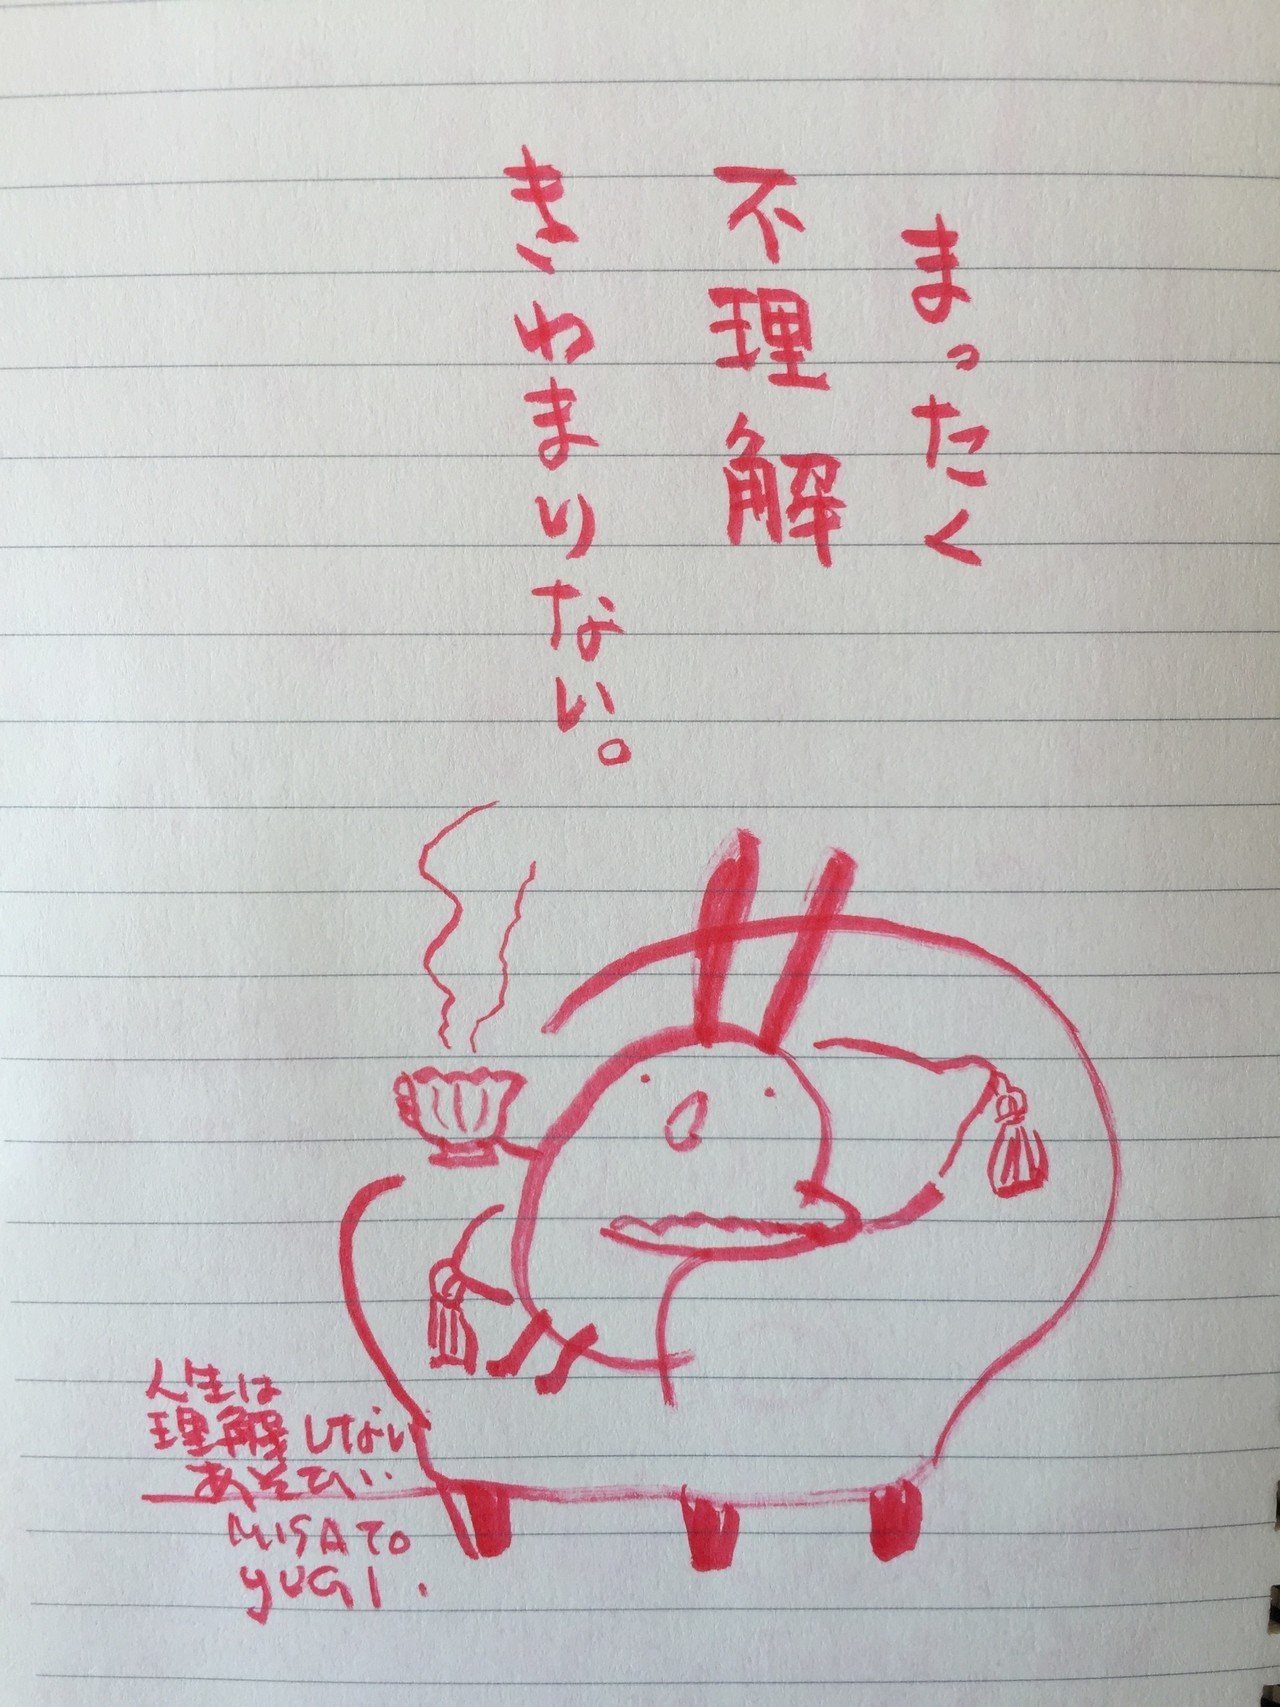 まったく
不理解
きわまりない。
人生は
理解しない
あそび
MISATO
YUGI.